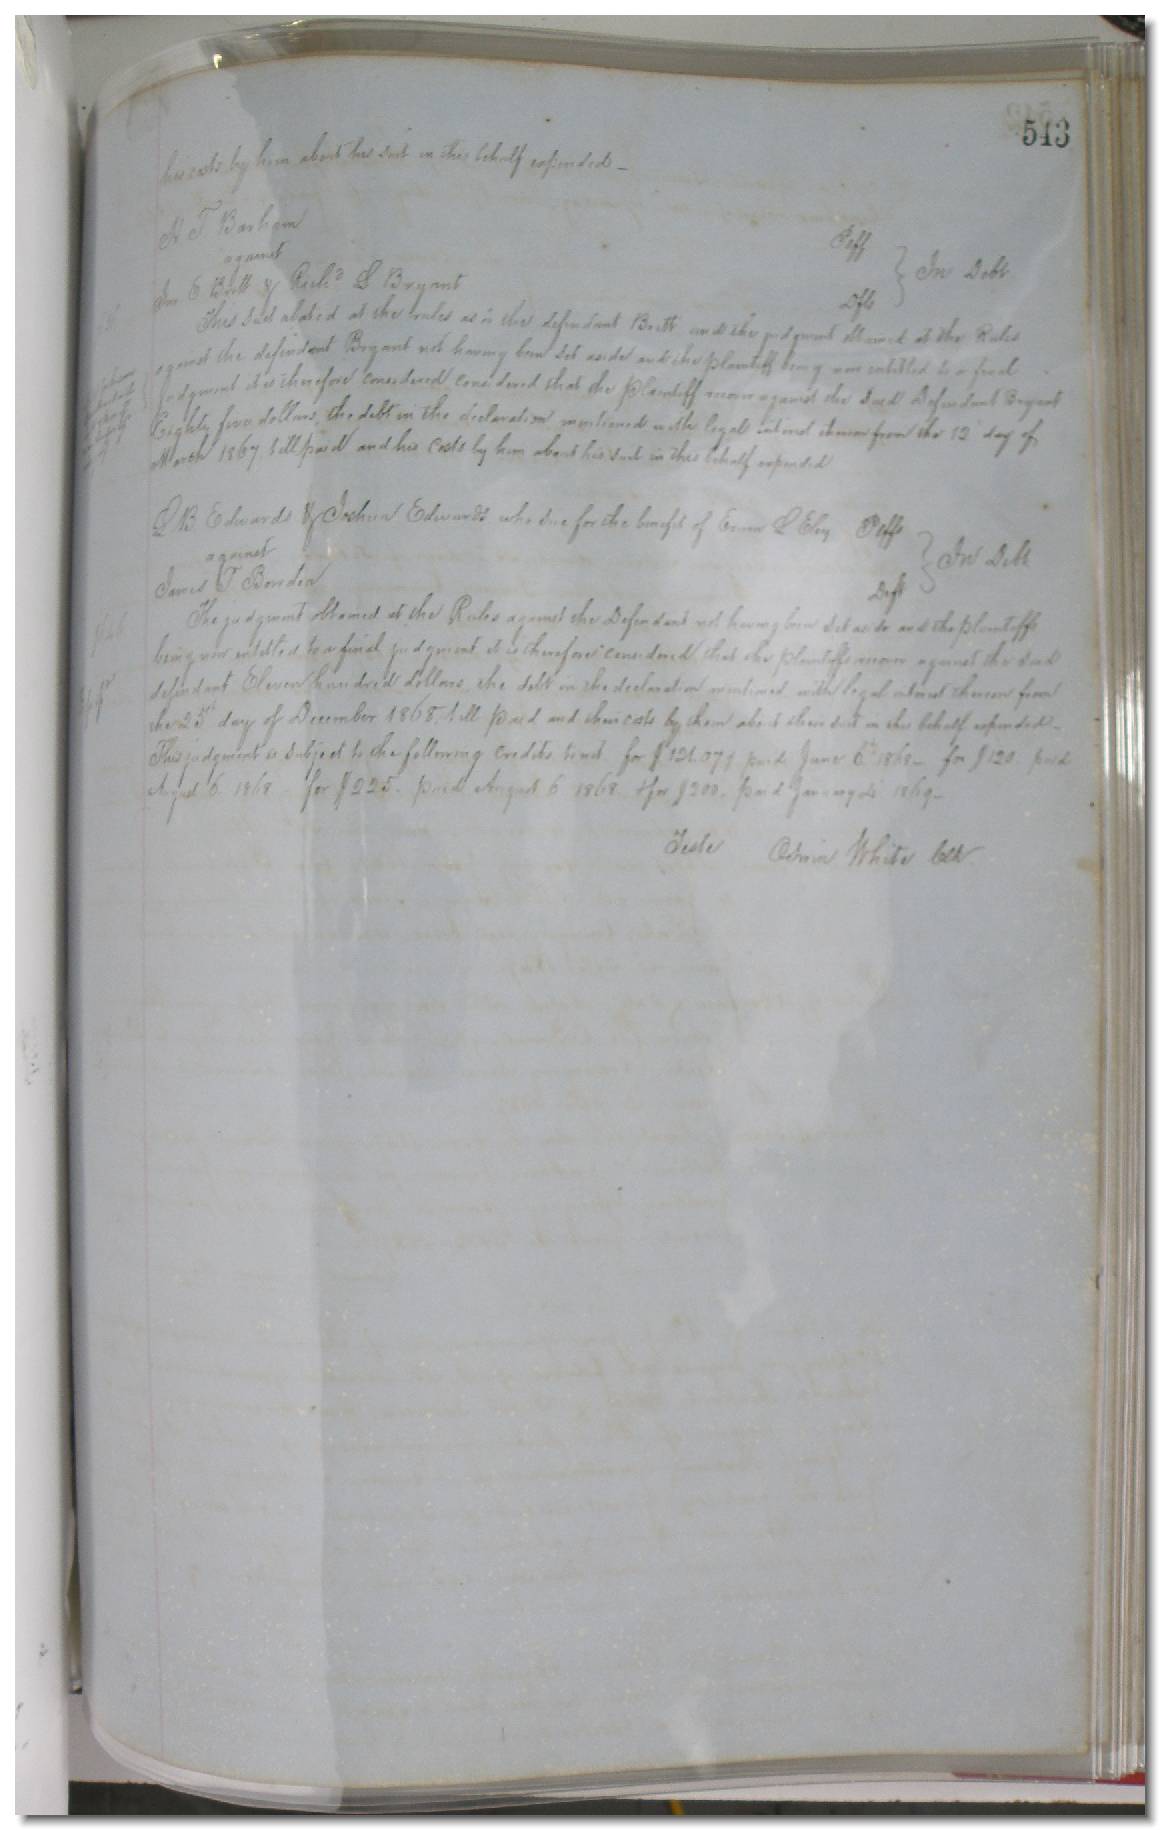 543
his costs by him about his suit in this behalf expended –
N T Barham Plff
against } In Debt
Jno E Britt & Richd L Bryant Dfts
This suit abated at the rules as to the defendant Britt and the judgment obtained at the Rules
against the defendant Bryant not having been set aside and the plaintiff being now entitled to a final
judgment it is therefore considered considered that the plaintiff recover against the said Defendant Bryant
Eighty five dollars, the debt in the declaration mentioned with legal interest thereon from the 12 day of
March 1867, till paid and his costs by him about his suit in this behalf expended
L B Edwards & Joshua Edwards who sue for the benefit of L Eley Plffs
against } In Debt
James T Bowden Deft
The judgment obtained at the Rules against the Defendant not having been set aside and the plaintiffs
being now entitled to a final judgment, it is therefore considered that the plaintiffs recover against the said
defendant Eleven hundred dollars, the debt in the declaration mentioned with legal interest thereon from
the 25th day of December 1868, till paid and their costs by them about their suit in this behalf expended –
This judgment is subject to the following credits to wit for $121.07 paid June 6th 1868 – for $120. paid
August 6 1868 for $225. paid August 6 1868 & for $200. paid 1869 –
Teste White Clk